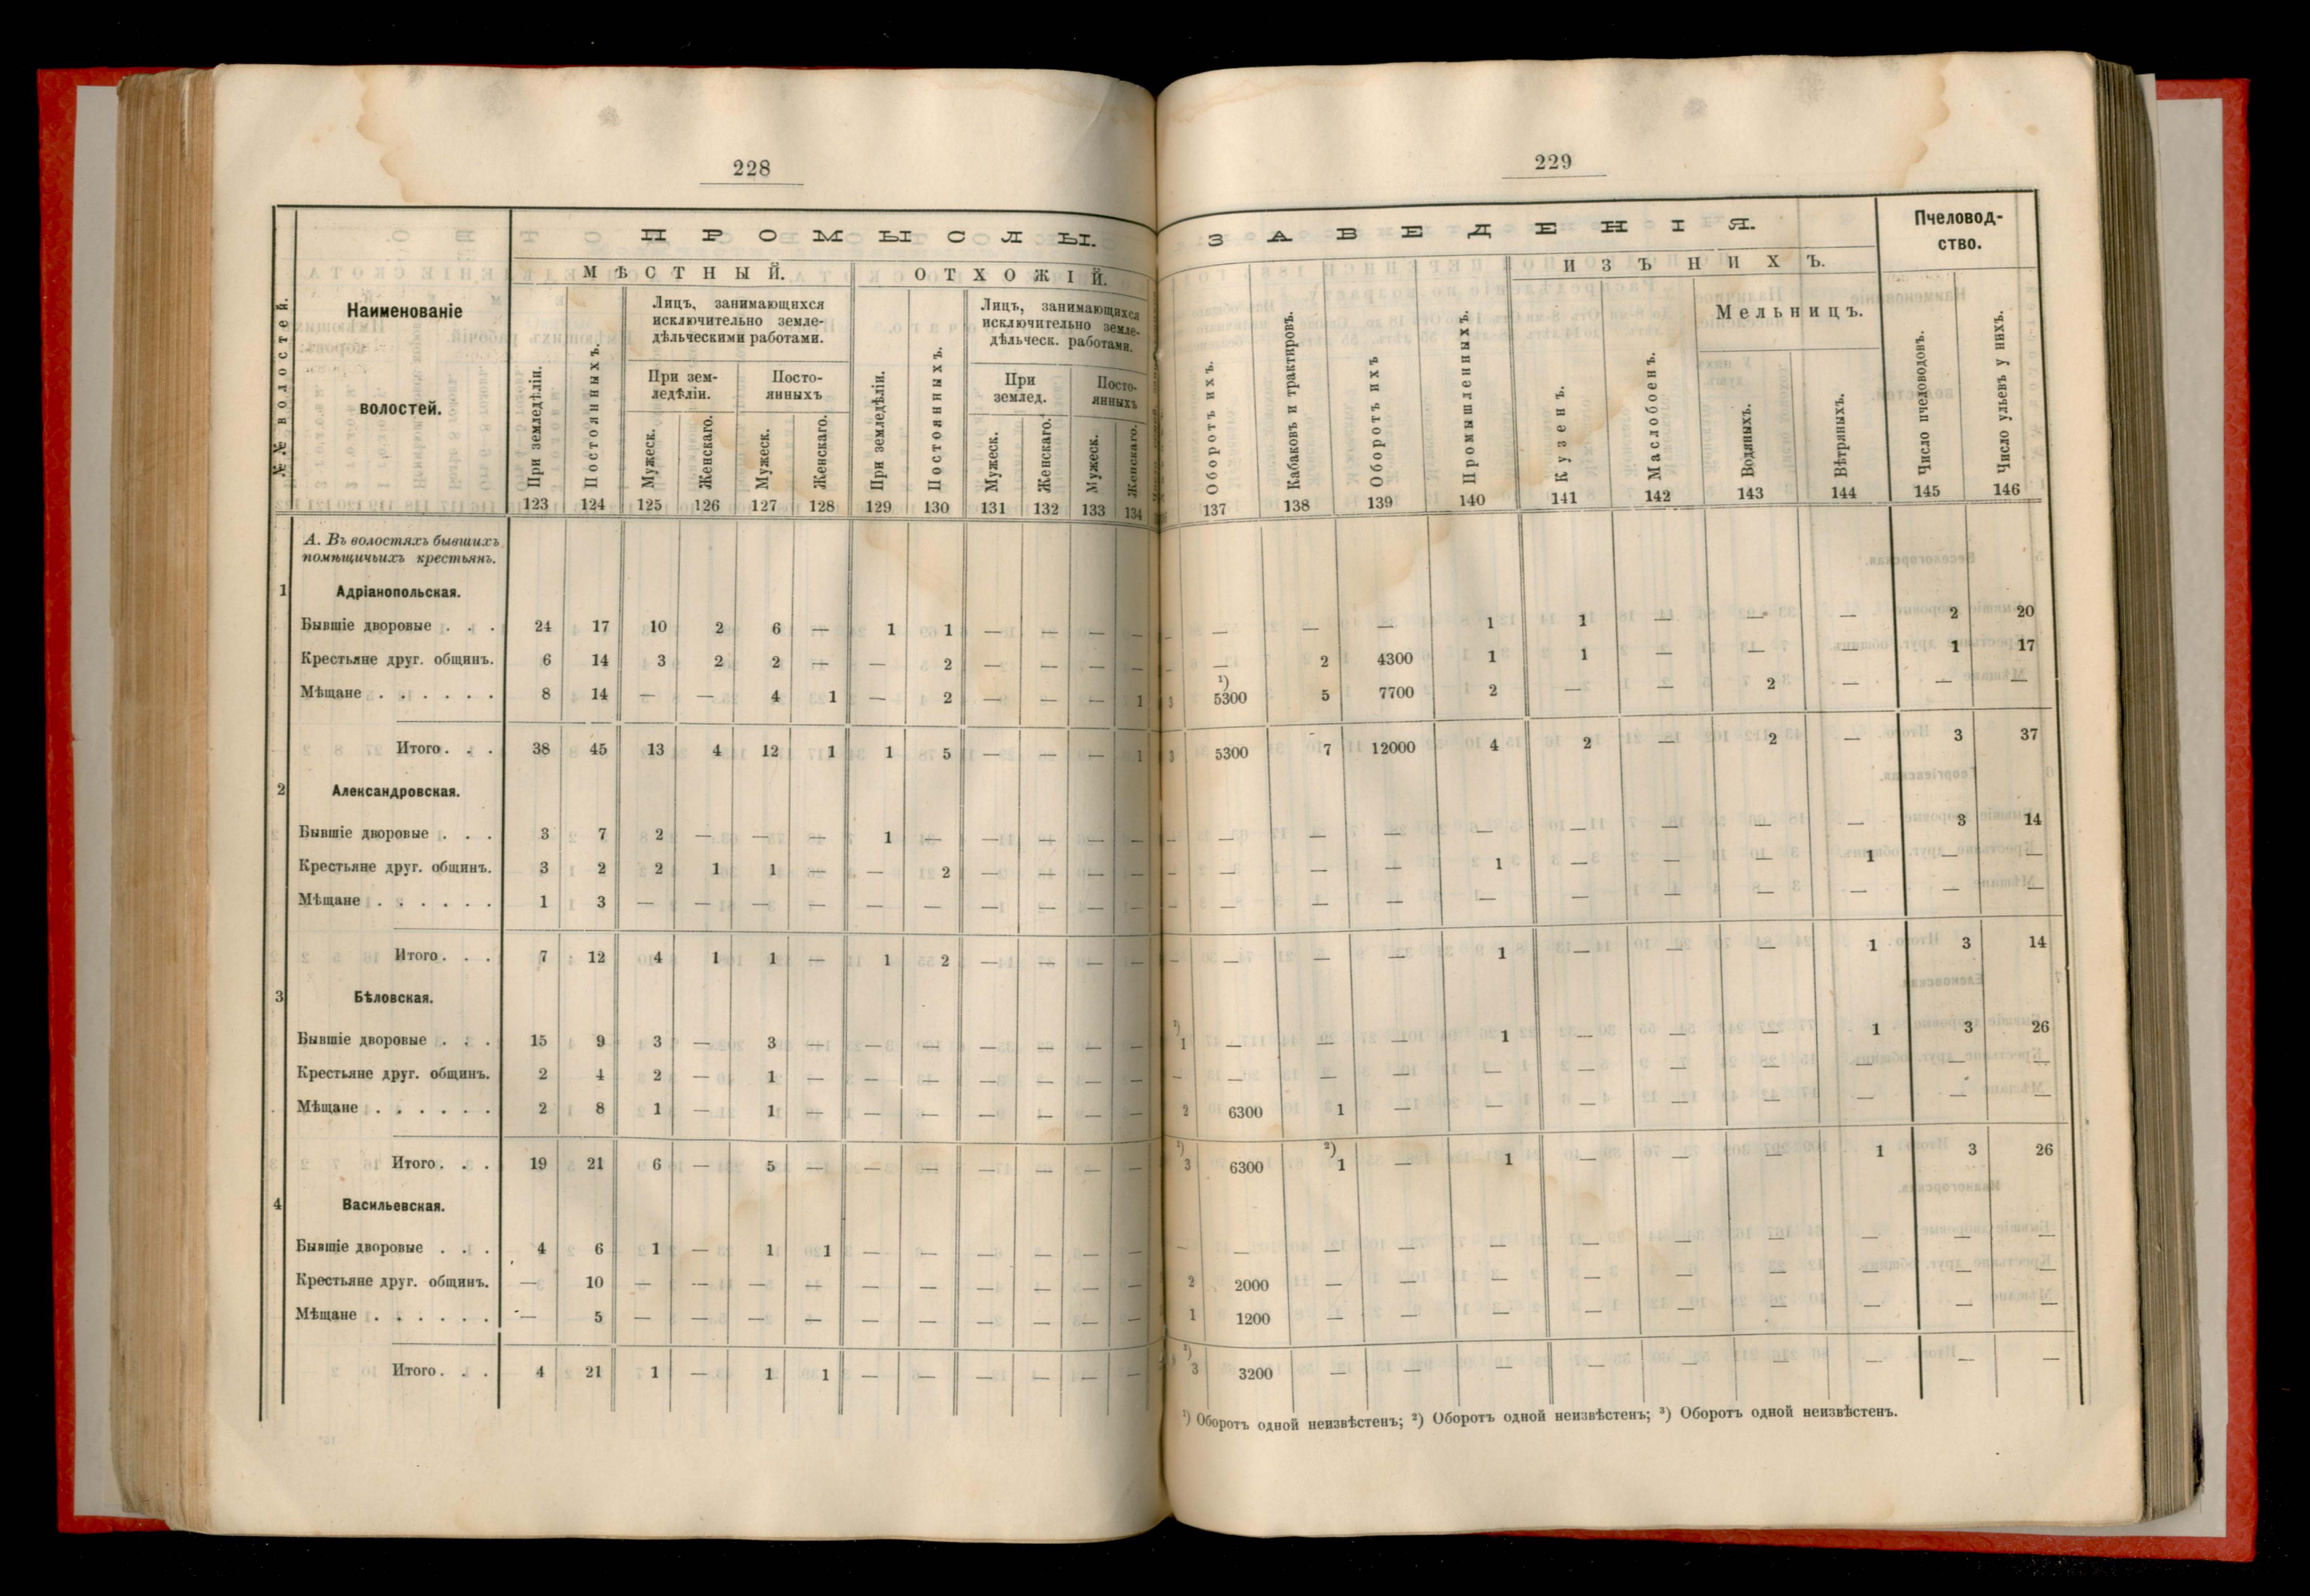 228
П Р О М Ы С Л Ы.
М Ѣ С Т Н Ы Й.
О Т Х О Ж І Й.
№№ волостей.
Наименованіе
волостей.
При земледѣліи.
Постоянныхъ.
Лицъ, занимающихся
исключительно земле-
дѣльческими работами.
При зем-
ледѣліи.
Посто-
янныхъ
Мужеск.
Женскаго.
Мужеск.
Женскаго.
При земледѣліи.
Постоянныхъ.
Лицъ, занимающихся
исключительно земле-
дѣльческ. работами.
При
землед.
Посто-
янныхъ
Мужеск.
Женскаго.
Мужеск.
Женскаго.
123 124 125 126 127 128 129 130 131 132 133 134
А. Въ волостяхъ бывшихъ
помѣщичьихъ крестьянъ.
1 Адріанопольская.
Бывшіе дворовые . . . 24 17 10 2 6 — 1 1 — — — —
Крестьяне друг. общинъ. 6 14 3 2 2 — — 2 — — — —
Мѣщане . . . . . . 8 14 — — 4 1 — 2 — — — 1
Итого . . . 38 45 13 4 12 1 1 5 — — — 1
2 Александровская.
Бывшіе дворовые . . . 3 7 2 — — — 1 — — — — —
Крестьяне друг. общинъ. 3 2 2 1 1 — — 2 — — — —
Мѣщане . . . . . . 1 3 — — — — — — — — — —
Итого . . . 7 12 4 1 1 — 1 2 — — — —
3 Бѣловская.
Бывшіе дворовые . . . 15 9 3 — 3 — — — — — — —
Крестьяне друг. общинъ. 2 4 2 — 1 — — — — — — —
Мѣщане . . . . . . 2 8 1 — 1 — — — — — — —
Итого . . . 19 21 6 — 5 — — — — — — —
4 Васильевская.
Бывшіе дворовые . . . 4 6 1 — 1 1 — — — — — —
Крестьяне друг. общинъ. — 10 — — — — — — — — — —
Мѣщане . . . . . . — 5 — — — — — — — — — —
Итого . . . 4 21 1 — 1 1 — — — — — —
229
З А В Е Д Е Н І Я.
Пчеловод-
ство.
И З Ъ Н И Х Ъ.
Мельницъ.
Оборотъ ихъ.
Кабаковъ и трактировъ.
Оборотъ ихъ
Промышленныхъ.
Кузенъ.
Маслобоенъ.
Водяныхъ.
Вѣтряныхъ.
Число пчеловодовъ.
Число ульевъ у нихъ.
137 138 139 140 141 142 143 144 145 146
— — — — 1 1 — — — 2 20
— — 2 4300 1 1 — — — 1 17
3 ¹) 5300 5 7700 2 — — 2 — — —
3 5300 7 12000 4 2 — 2 — 3 37
— — — — — — — — — 3 14
— — — — 1 — — — 1 — —
— — — — — — — — — — —
— — — — 1 — — — 1 3 14
¹) 1 — — — 1 — — — 1 3 26
— — — — — — — — — — —
2 6300 1 — — — — — — — —
¹) 3 6300 ²) 1 — 1 — — — 1 3 26
— — — — — — — — — — —
2 2000 — — — — — — — — —
1 1200 — — — — — — — — —
³) 3 3200 — — — — — — — — —
¹) Оборотъ одной неизвѣстенъ; ²) Оборотъ одной неизвѣстенъ; ³) Оборотъ одной неизвѣстенъ.